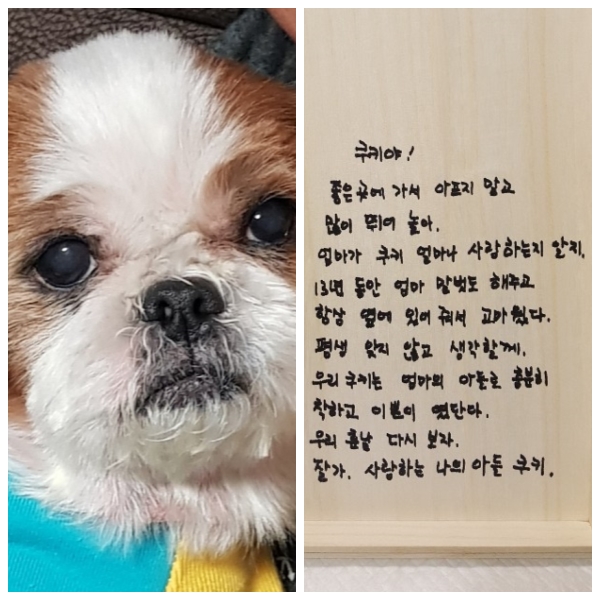 쿠키야!
좋은 곳에 가서 아프지 말고
많이 뛰어 놀아.
엄마가 쿠키 얼마나 사랑하는지 알지.
13년 동안 엄마 말벗도 해주고
항상 옆에 있어 줘서 고마웠다.
평생 잊지 않고 생각할게.
우리 쿠키는 엄마의 아들로 충분히
착하고 이쁜이 였단다.
우리 훗날 다시 보자.
잘가. 사랑하는 나의 아들 쿠키.